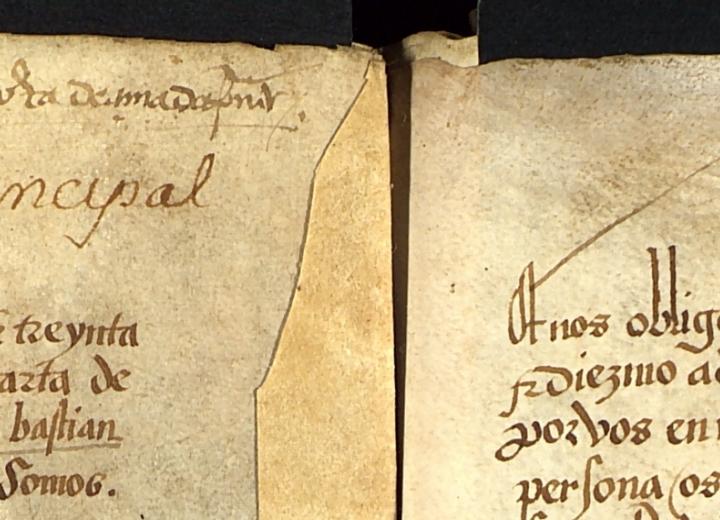 ncipal
treynta
arta de
bastian
Somos.
nos oblig
diezmo a
por vos en
persona os